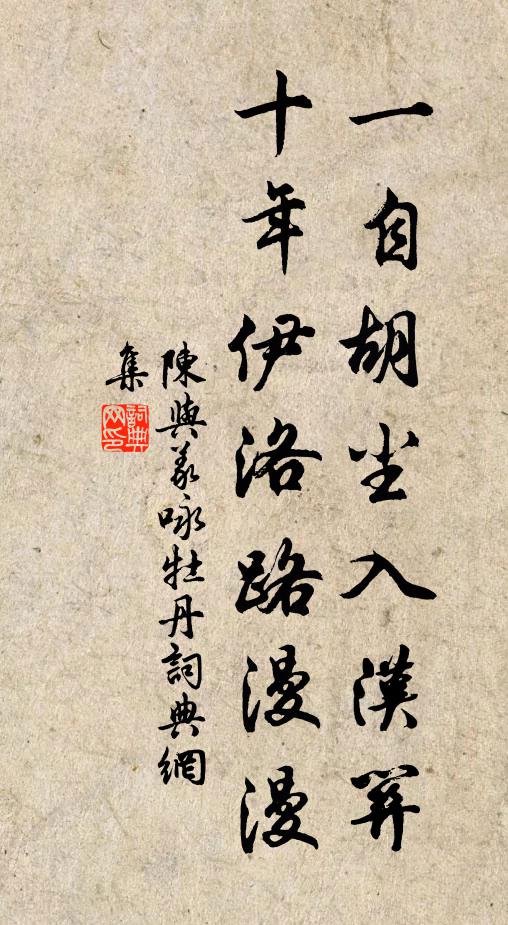 一自胡尘入漢關
十年伊洛路漫漫
陳與義詠牡丹詞典網
集
詞典網印